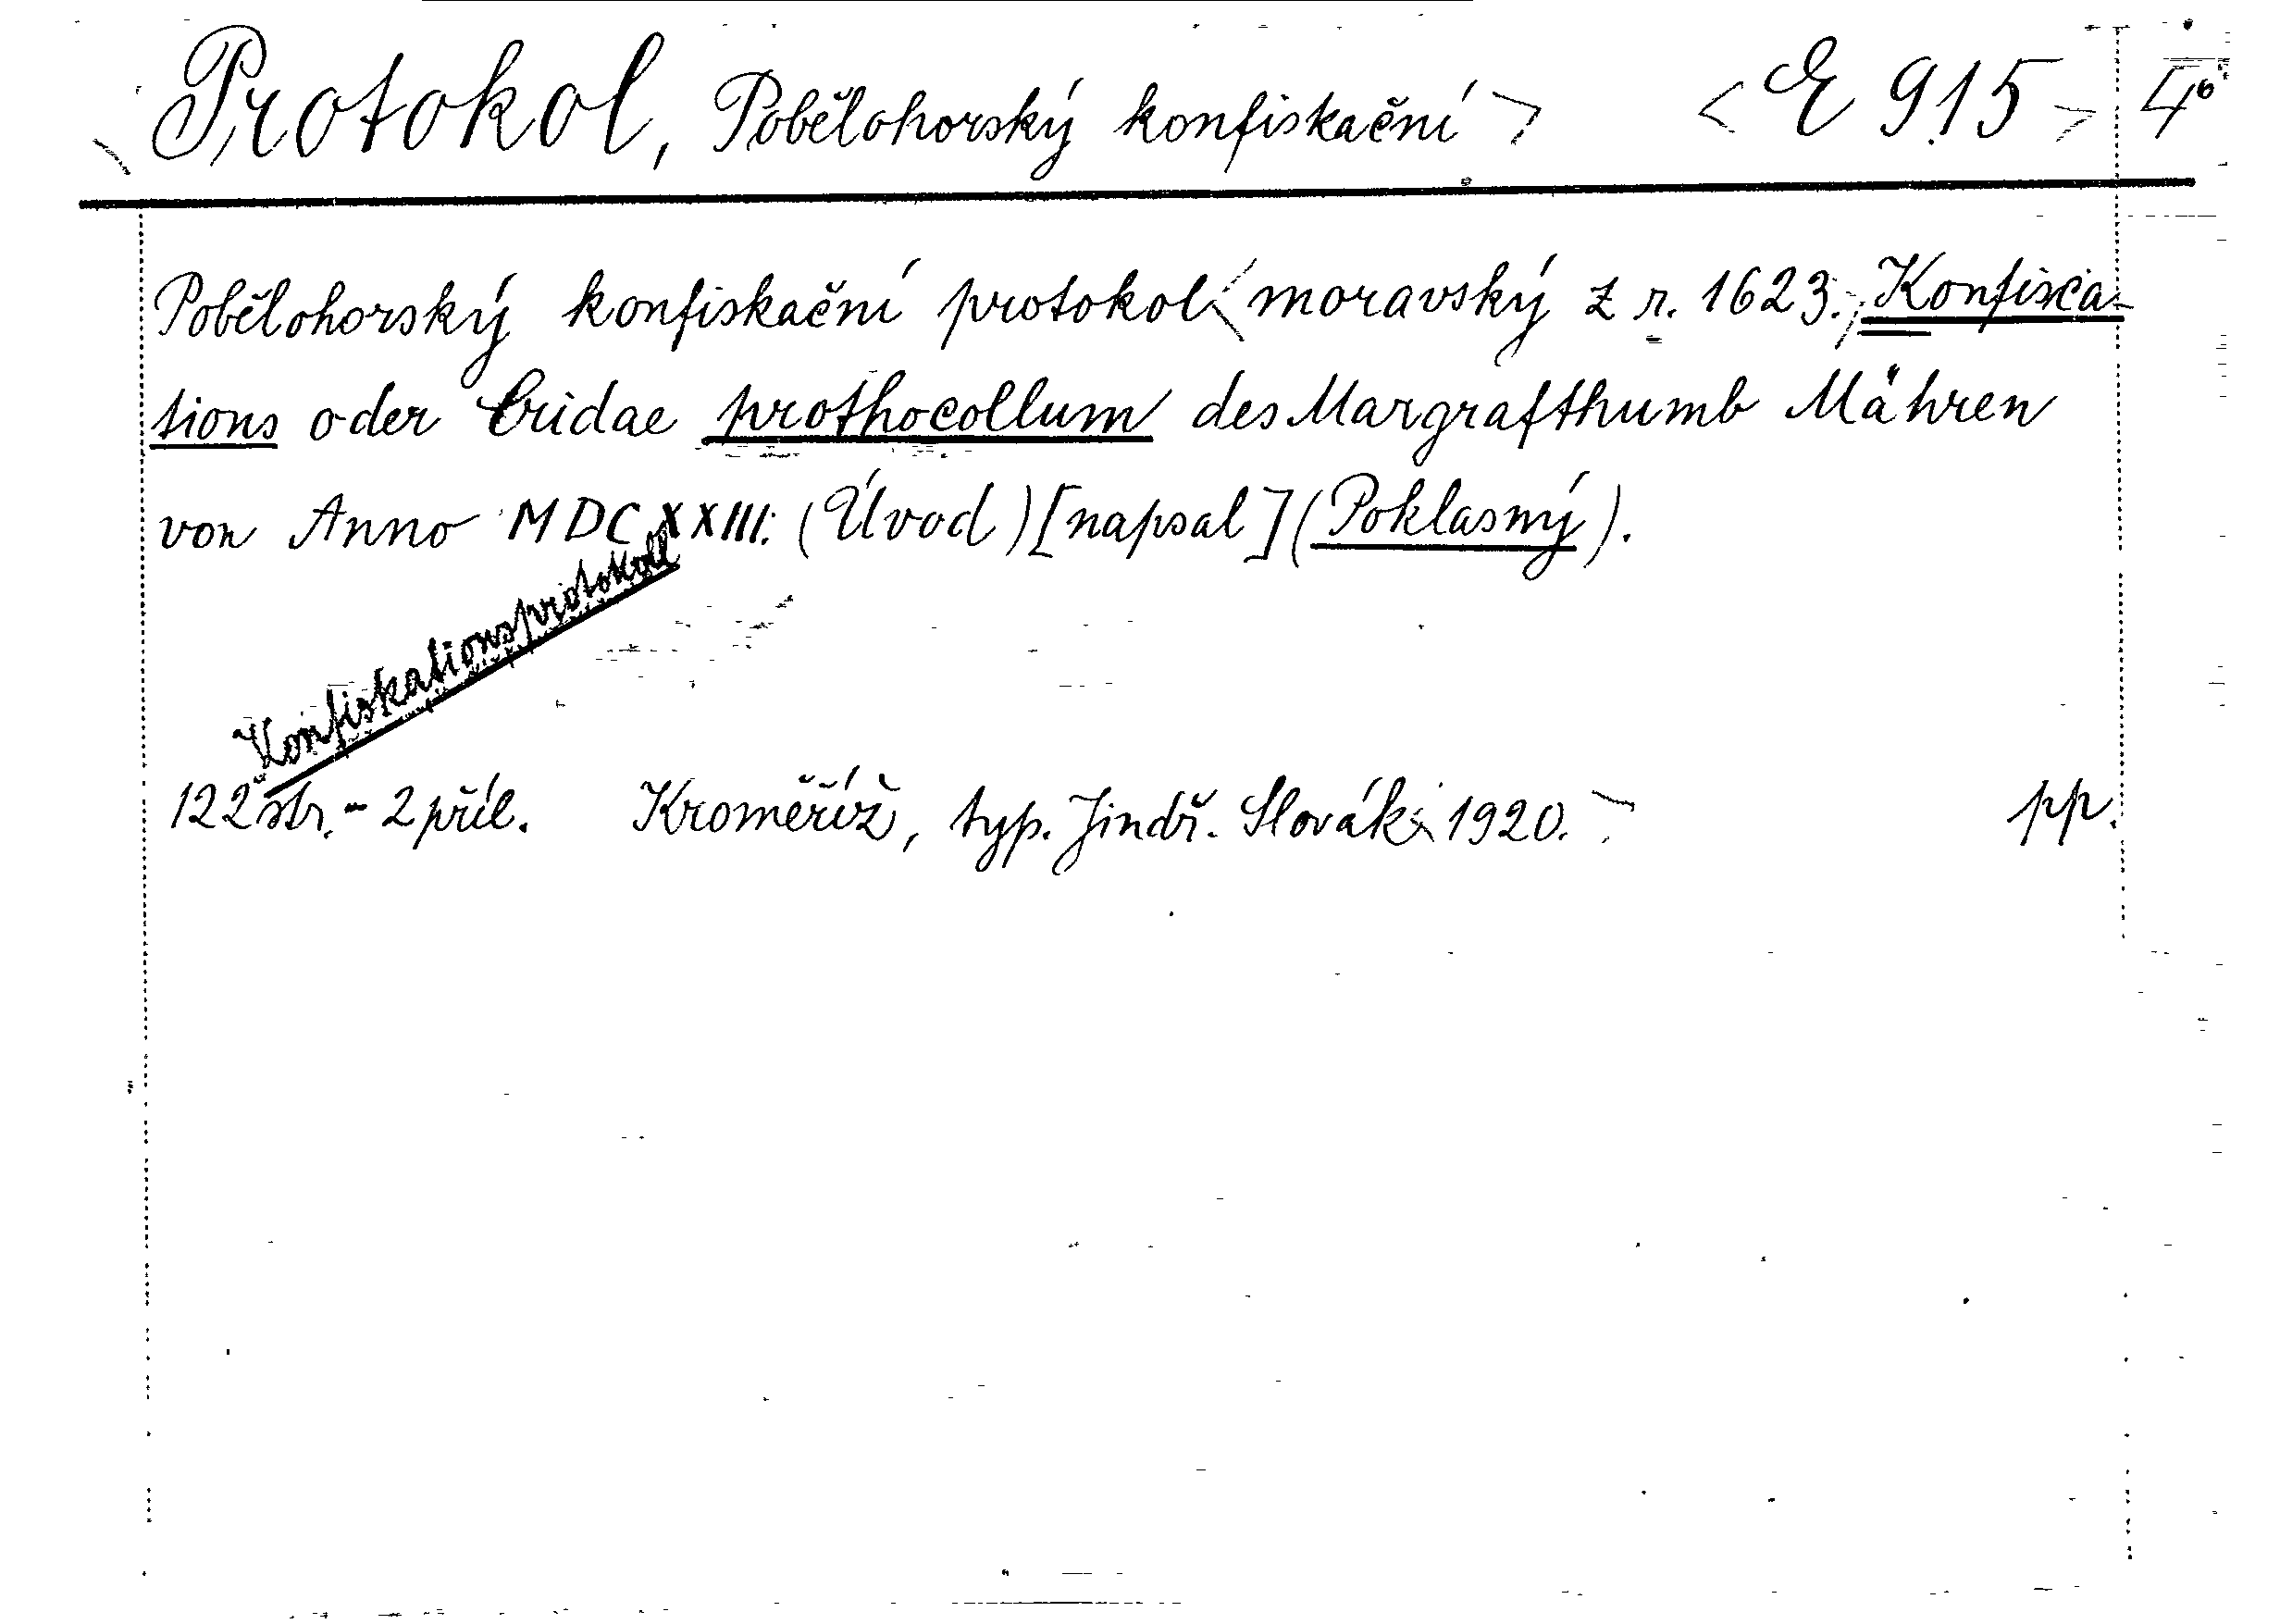 Protokol, Pobělohorský konfiskační > < E 915 > 4°
Pobělohorský konfiskační protokol moravský z r. 1623. Konfisca-
tions oder Cridae prothocollum des Margrafthumb Mähren
von Anno MDCXXIII. (Úvod) [napsal] (Poklasný).
Konfiskationsprotokoll
122 str. - 2 příl. Kroměříž, typ. Jindř. Slovák 1920. pp.